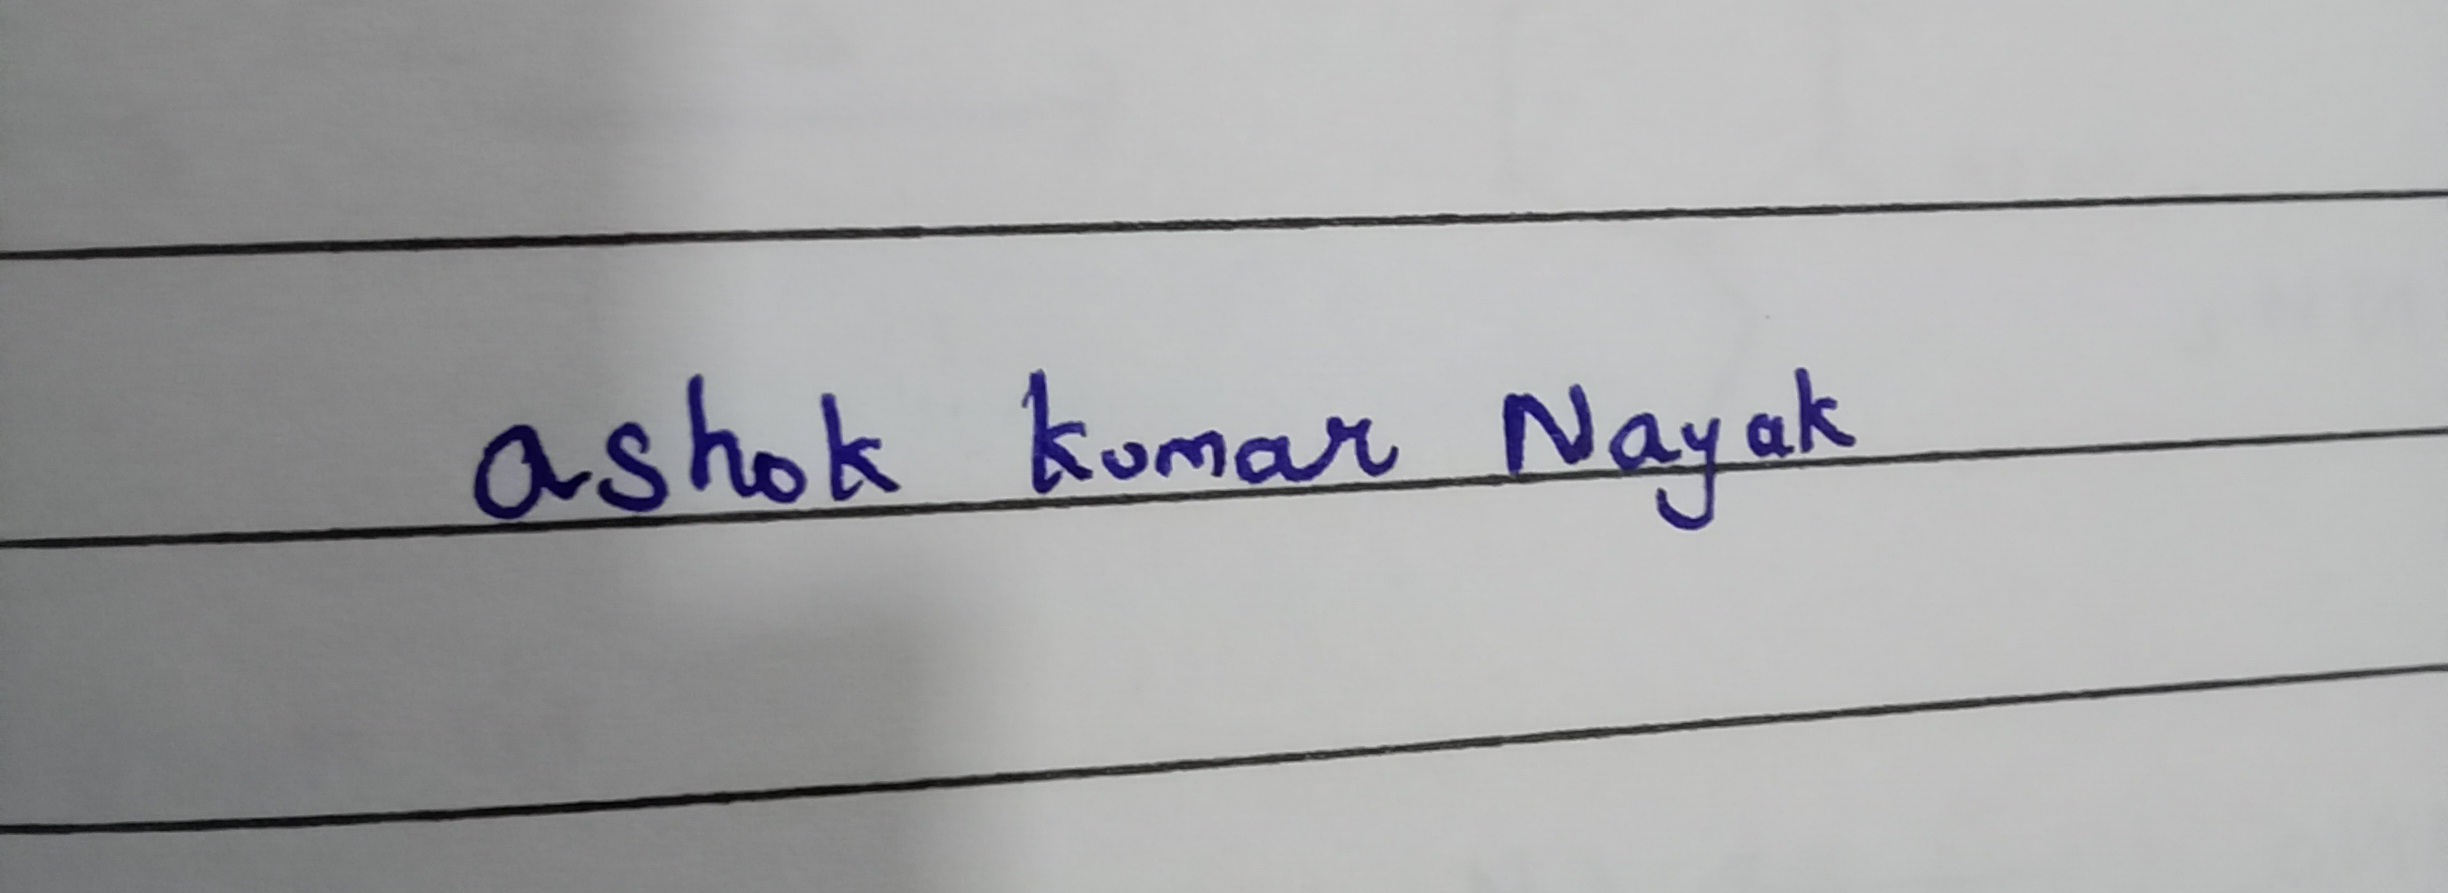 ashok kumar Nayak